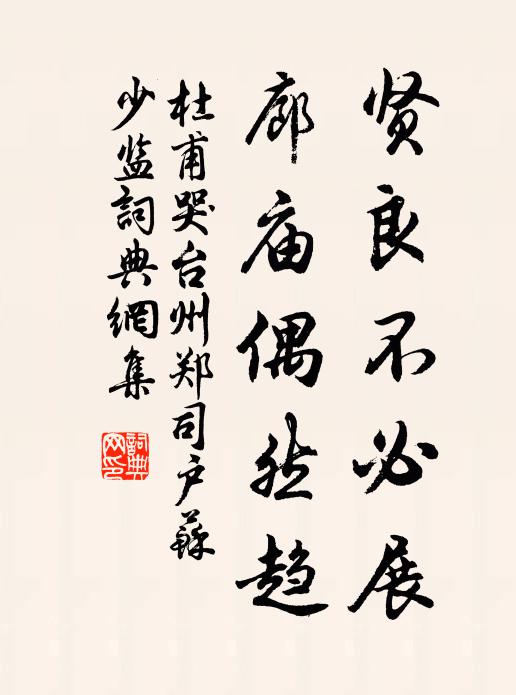 贤良不必展
廊庙偶然趋
杜甫哭台州郑司户蘇
少监詞典網集
詞典
网印